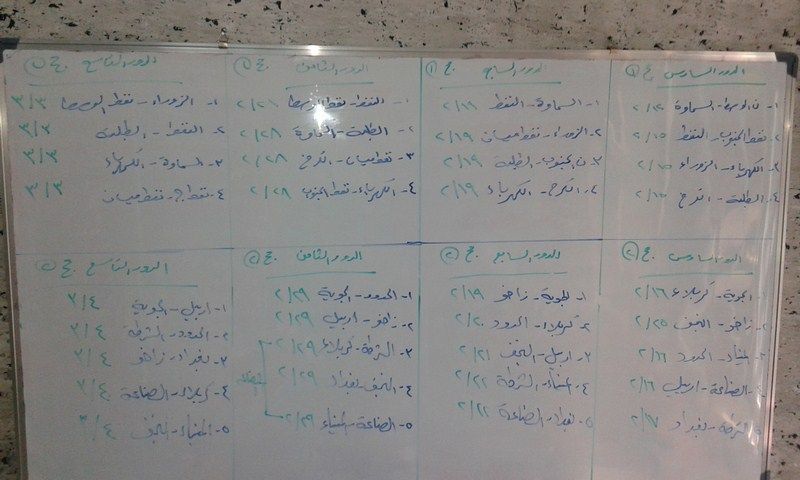 الدور السادس مج ١
٢. نفط الجنوب - النفط ٢/١٥
٣. الكهرباء - الزوراء ٢/١٥
٤. الطلبة - الكرخ ٢/١٥
الدور السابع مج ١
١- السماوة - النفط
٢. الزوراء - نفط ميسان ٢/١٩
٣. ن الجنوب - الطلبة ٢/١٩
٤. الكرخ - الكهرباء ٢/١٩
الدور الثامن مج ١
١- النفط - نفط الوسط ٢/٢٨
٢- الطلبة - السماوة ٢/٢٨
٣- نفط ميسان - الكرخ ٢/٢٨
٤- الكهرباء - نفط الجنوب ٢/٢٨
الدور التاسع مج ١
١- الزوراء - نفط الوسط ٣/٣
٢. النفط - الطلبة ٣/٣
٣. السماوة - الكهرباء ٣/٣
٤. نفط ج - نفط ميسان ٣/٣
الدور السادس مج ٢
١- الجوية - كربلاء ٢/١٦
٢- زاخو - النجف ٢/٢٥
٣- الميناء - الحدود ٢/١٦
٤- الصناعة - اربيل ٢/١٦
٥- الشرطة - بغداد ٢/١٧
الدور السابع مج ٢
١- الجوية - زاخو ٢/١٩
٢- كربلاء - الحدود ٢/٢٠
٣- اربيل - النجف ٢/٢١
٤- الميناء - الشرطة ٢/٢٢
٥- بغداد - الصناعة ٢/٢٢
الدور الثامن مج ٢
١- الحدود - الجوية ٢/٢٩
٢- زاخو - اربيل ٢/٢٩
٣- الشرطة - كربلاء ٢/٢٩
٤- النجف - بغداد ٢/٢٩
٥- الصناعة - الميناء ٢/٢٩
الدور التاسع مج ٢
١- اربيل - الجوية ٣/٤
٢- الحدود - الشرطة ٣/٤
٣- بغداد - زاخو ٣/٤
٤- كربلاء - الصناعة ٣/٤
٥- الميناء - النجف ٣/٤